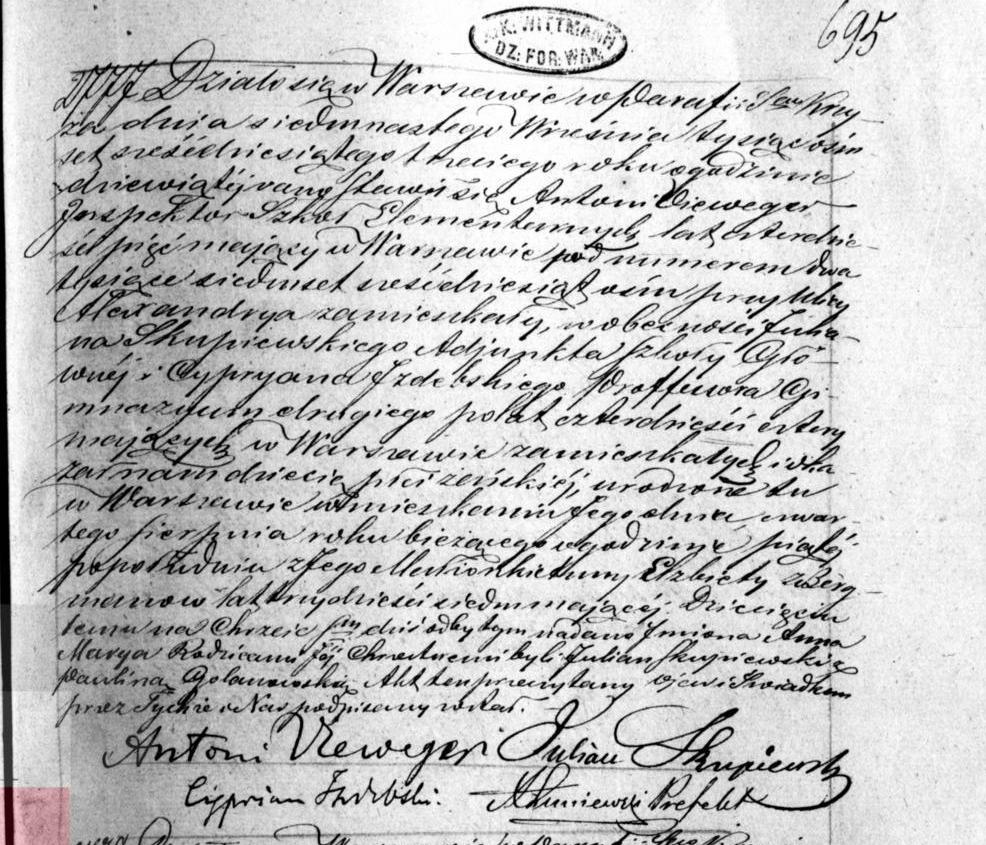 695
A. K. WITTMANN
DZ: FOR: WAW.
1777 Działo się w Warszawie w Parafii Sgo Krzy-
ża dnia siedmnastego Września tysiąc ośm
set sześćdziesiątego trzeciego roku o godzinie
dziewiątéj rano stawił się Antoni Vieweger
Inspektor Szkół Elementarnych lat czterdzie-
ści pięć mający w Warszawie pod numerem dwa
tysiące siedmset sześćdziesiąt ośm przy ulicy
Alexandrya zamieszkały, w obecności Julia-
na Skupiewskiego Adjunkta Szkoły Głó-
wnéj i Cypryana Izdebskiego Proffessora Gi-
mnazyum drugiego po lat czterdzieści cztery
mających w Warszawie zamieszkałych i oka-
zał nam dziecię płci żeńskiéj, urodzone tu
w Warszawie w mieszkaniu Jego dnia czwar-
tego Sierpnia roku bieżącego o godzinie piątéj
popołudniu z Jego Małżonki Elżbiety z Berg-
manow lat trzydzieści siedm mającéj. Dziecięciu
temu na Chrzcie Sym dziś odbytym nadano Imiona Anna
Marya Rodzicami Jéj Chrzestnemi byli Julian Skupiewski z
Pauliną Golanowską. Akt ten przeczytany ojcu i Świadkom
przez Tychże i Nas podpisany został.
Antoni Vieweger Julian Skupiewski
Cypryan Izdebski. Prefekt